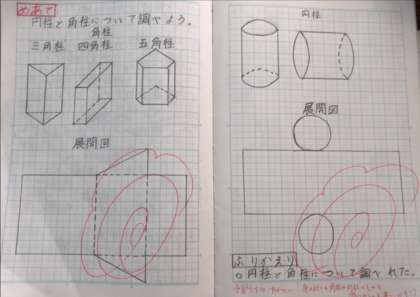 めあて
円柱と角柱について調べよう。
角柱
三角柱 四角柱 五角柱
展開図
円柱
展開図
ふりかえり
○円柱と角柱について調べれた。